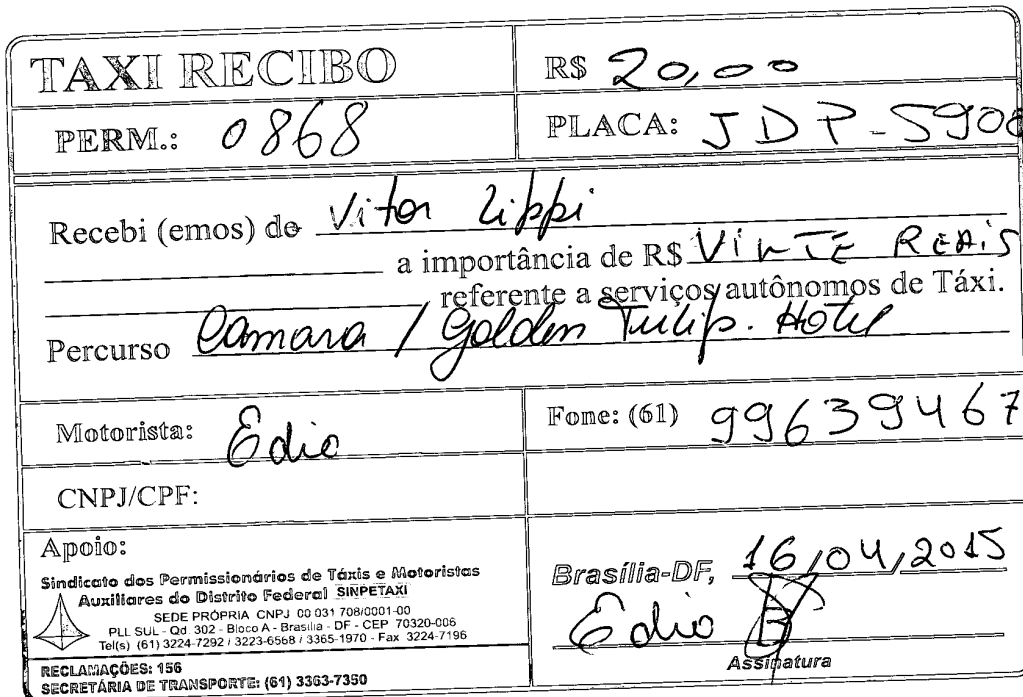 TAXI RECIBO
R$ 20,00
PERM.: 0868
PLACA: JDP-5908
Recebi (emos) de Vitor Lippi
a importância de R$ VINTE REAIS
referente a serviços autônomos de Táxi.
Percurso Camara / Golden Tulip. Hotel
Motorista: Edio
Fone: (61) 99639467
CNPJ/CPF:
Apoio:
Sindicato dos Permissionários de Táxis e Motoristas
Auxiliares do Distrito Federal SINPETAXI
SEDE PRÓPRIA CNPJ 00 031 708/0001-00
PLL SUL - Qd. 302 - Bloco A - Brasília - DF - CEP 70320-006
Tel(s) (61) 3224-7292 / 3223-6568 / 3365-1970 - Fax 3224-7196
RECLAMAÇÕES: 156
SECRETÁRIA DE TRANSPORTE: (61) 3363-7350
Brasília-DF, 16/04/2015
Edio
Assinatura